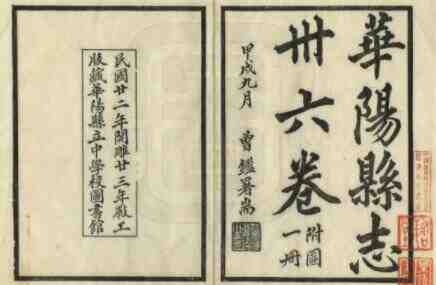 華陽縣志
卅六卷
附圖一冊
甲戌九月 曾鑑署耑
民國廿二年開雕廿三年竣工
版藏華陽縣立中學校圖書館